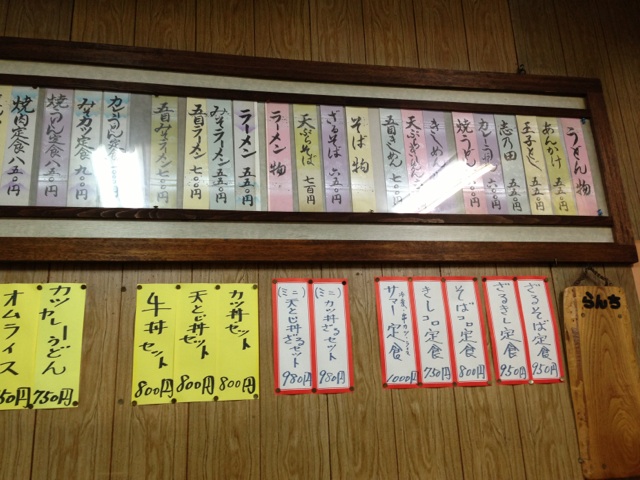 うどん物
あんかけ 五五〇円
玉子とじ 五五〇円
志乃田 五五〇円
カレーうどん 六〇〇円
焼うどん
きしめん
天ぷらきしめん
五目きしめん 七〇〇円
そば物
ざるそば 六五〇円
天ぷらそば 七百円
ラーメン物
ラーメン 五五〇円
みそラーメン 五五〇円
五目ラーメン 七〇〇円
五目みそラーメン 七〇〇円
カレーうどん定食
みそカツ定食 九〇〇円
焼うどん定食 八五〇円
焼肉定食 八五〇円
らんち
ざるそば定食 950円
ざるきし定食 950円
そばコロ定食 800円
きしコロ定食 750円
サマー定食 1000円
(ミニ)カツ丼ざるセット 980円
(ミニ)天とじ丼ざるセット 980円
カツ丼セット 800円
天とじ丼セット 800円
牛丼セット 800円
カツカレーうどん 750円
オムライス